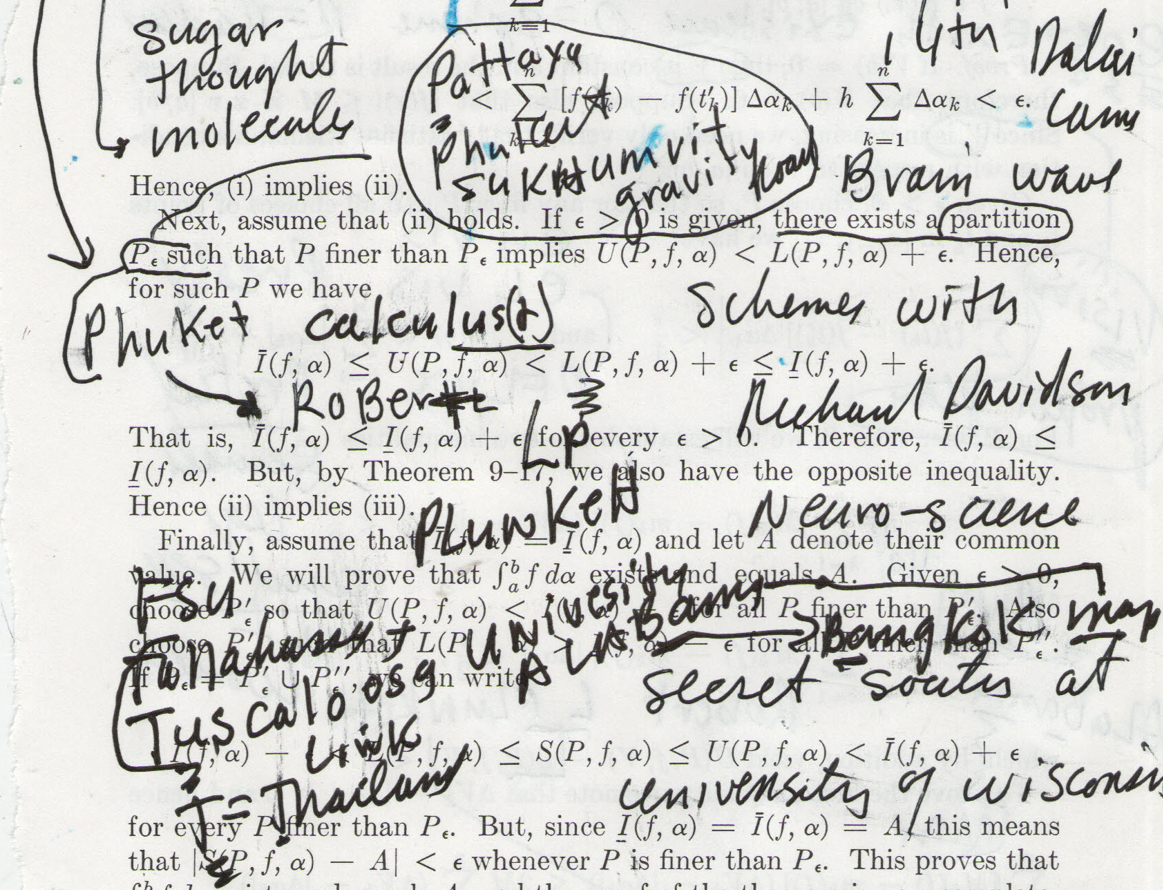 k=1
sugar
thought
molecules
Pattaya
Phuket
Sukhumvit
gravity Road
14th Dalai
Lama
Brain wave
n
∑ [f( ) − f(t′k)] Δαk + h ∑ Δαk < ε.
k=1
Hence, (i) implies (ii).
Next, assume that (ii) holds. If ε > 0 is given, there exists a partition
Pε such that P finer than Pε implies U(P, f, α) < L(P, f, α) + ε. Hence,
for such P we have
Phuket calculus(t) schemes with
Ī(f, α) ≤ U(P, f, α) < L(P, f, α) + ε ≤ I(f, α) + ε.
Robert Richard Davidson
LP
That is, Ī(f, α) ≤ I(f, α) + ε for every ε > 0. Therefore, Ī(f, α) ≤
I(f, α). But, by Theorem 9–17, we also have the opposite inequality.
Hence (ii) implies (iii).
PlunKett Neuro-science
Finally, assume that Ī(f, α) = I(f, α) and let A denote their common
value. We will prove that ∫ab f dα exists and equals A. Given ε > 0,
choose P′ε so that U(P, f, α) < Ī(f, α) + ε for all P finer than P′ε. Also
choose P″ε that L(P, f, α) > I(f, α) − ε for all P finer than P″ε.
If Pε = P′ε ∪ P″ε, we can write
FSU
Tallahassee
University
Alabama
Bangkok map
Tuscaloosa
Link
T = Thailand
secret societies at
I(f, α) − ε < L(P, f, α) ≤ S(P, f, α) ≤ U(P, f, α) < Ī(f, α) + ε
university of wisconsin
for every P finer than Pε. But, since I(f, α) = Ī(f, α) = A, this means
that |S(P, f, α) − A| < ε whenever P is finer than Pε. This proves that